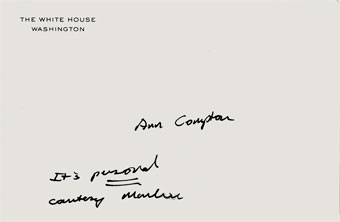 THE WHITE HOUSE
WASHINGTON
Ann Compton
It's personal
courtesy